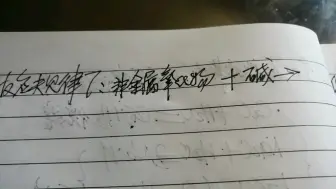 反应规律7：非金属氧化物 + 碱→